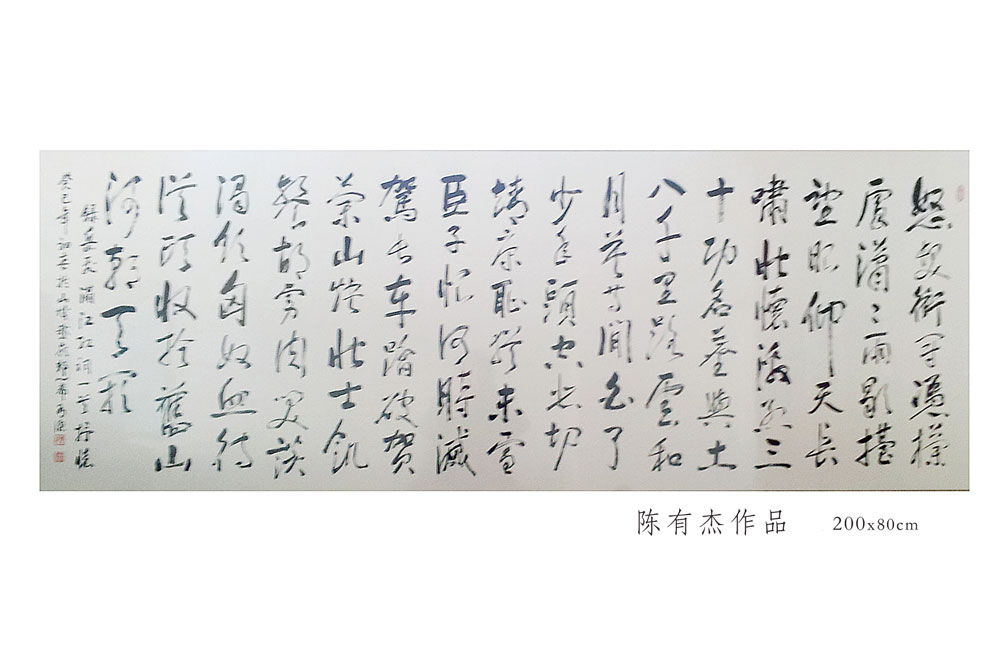 怒髮衝冠憑欄
處瀟瀟雨歇擡
望眼仰天長
嘯壯懷激烈三
十功名塵與土
八千里路雲和
月莫等閒白了
少年頭空悲切
靖康恥猶未雪
臣子恨何時滅
駕長車踏破賀
蘭山缺壯士飢
餐胡虜肉笑談
渴飲匈奴血待
從頭收拾舊山
河朝天闕
錄岳飛滿江紅詞一首抒懷
癸巳年初春於
陈有杰作品 200x80cm